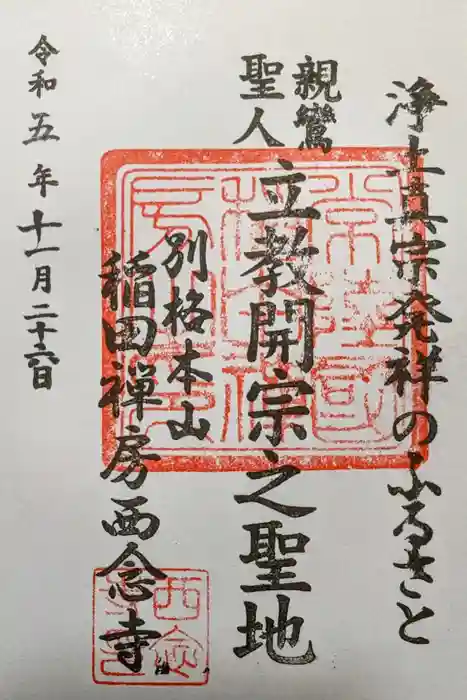 浄土真宗発祥のふるさと
親鸞
聖人
立教開宗之聖地
別格本山
稲田禅房西念寺
令和五年十一月二十六日